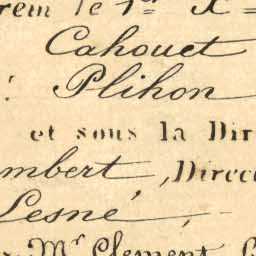 rem le 1er X
Cahouet
: Plihon
et sous la Dir
mbert, Direc
Lesné,
Mr Clement